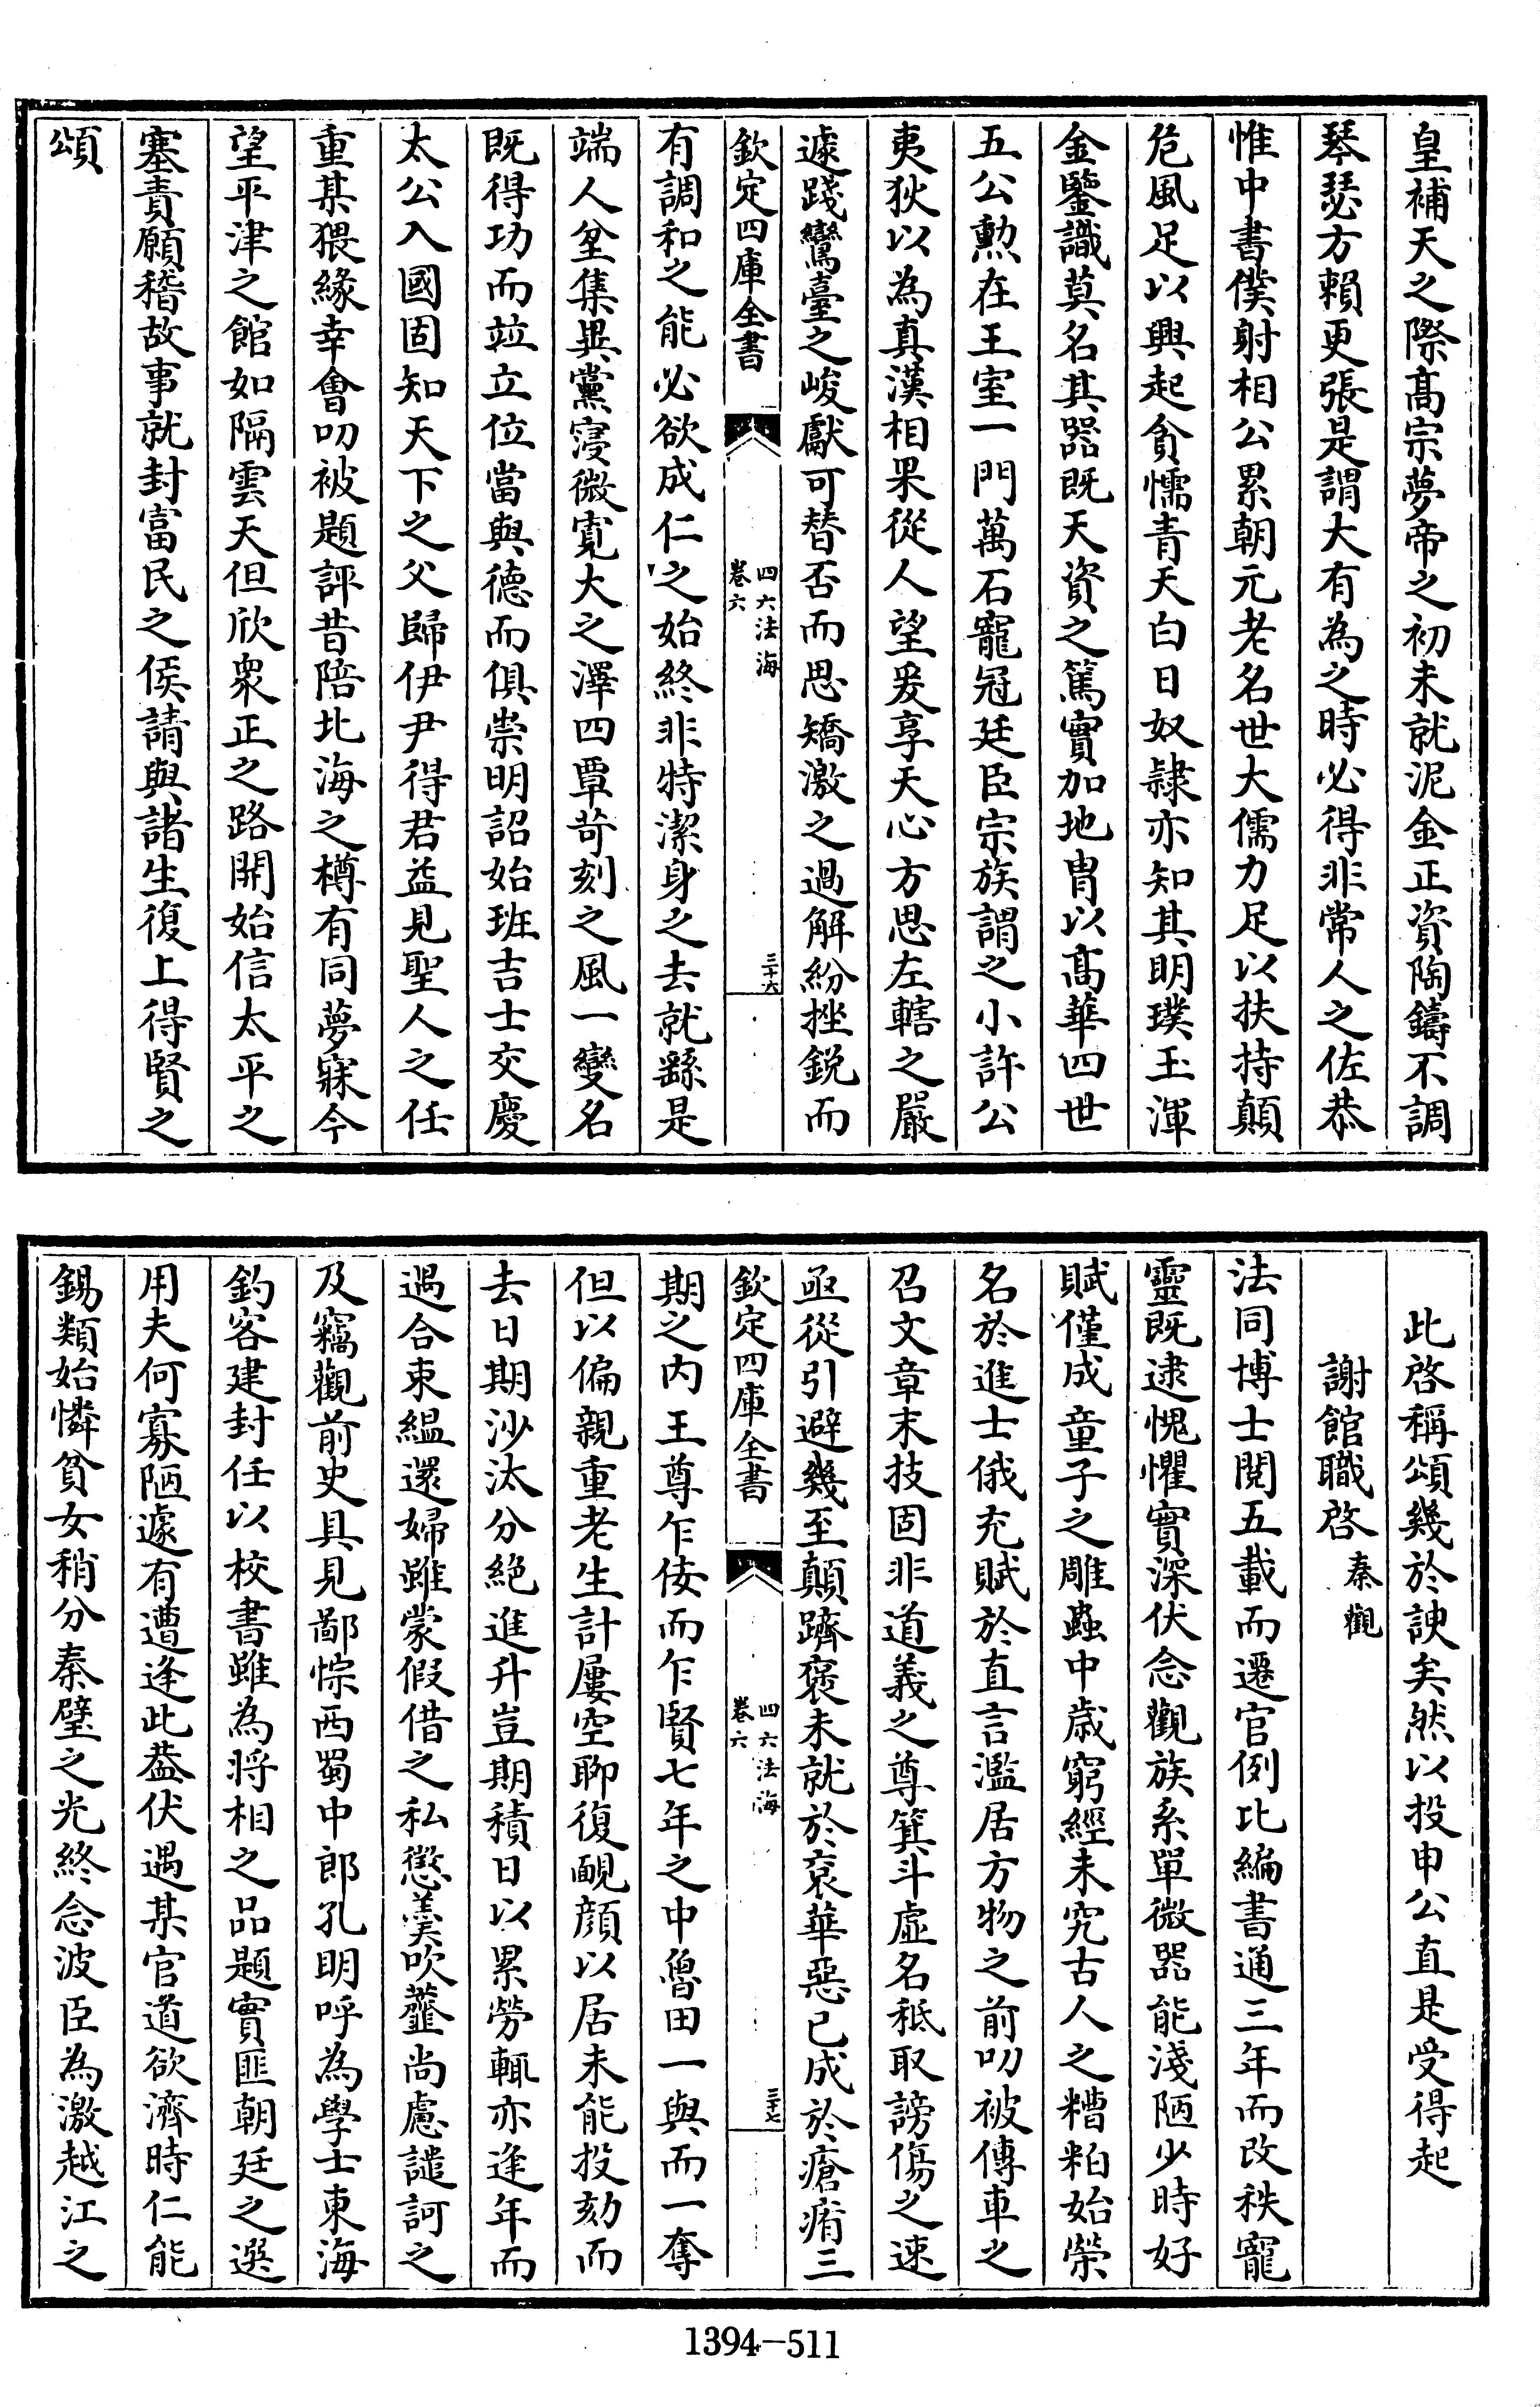 皇補天之際高宗夢帝之初未就泥金正資陶鑄不調
琴瑟方賴更張是謂大有為之時必得非常人之佐恭
惟中書僕射相公累朝元老名世大儒力足以扶持顛
危風足以興起貪懦青天白日奴隸亦知其明璞玉渾
金鑒識莫名其器既天資之篤實加地胄以高華四世
五公勲在王室一門萬石寵冠廷臣宗族謂之小許公
夷狄以為真漢相果從人望爰享天心方思左轄之嚴
遽踐鸞臺之峻獻可替否而思矯激之過解紛挫銳而
欽定四庫全書
四六法海
卷六
三十六
有調和之能必欲成仁之始終非特潔身之去就繇是
端人坌集異黨寖微寬大之澤四覃苛刻之風一變名
既得功而竝立位當與德而俱崇明詔始班吉士交慶
太公入國固知天下之父歸伊尹得君益見聖人之任
重某猥緣幸會叨被題評昔陪北海之樽有同夢寐今
望平津之館如隔雲天但欣衆正之路開始信太平之
塞責願稽故事就封富民之侯請與諸生復上得賢之
頌
此啓稱頌幾於諛矣然以投申公直是受得起
謝館職啓 秦觀
法同博士閱五載而遷官例比編書通三年而改秩寵
靈既逮愧懼實深伏念觀族系單微器能淺陋少時好
賦僅成童子之雕蟲中歲窮經未究古人之糟粕始榮
名於進士俄充賦於直言濫居方物之前叨被傳車之
召文章末技固非道義之尊箕斗虛名秪取謗傷之速
亟從引避幾至顛躋褒未就於衮華惡已成於瘡痏三
欽定四庫全書
四六法海
卷六
三十七
期之内王尊乍佞而乍賢七年之中魯田一與而一奪
但以偏親重老生計屢空聊復靦顔以居未能投劾而
去日期沙汰分絶進升豈期積日以累勞輒亦逢年而
遇合束緼還婦雖蒙假借之私懲羹吹虀尚慮譴訶之
及竊觀前史具見鄙悰西蜀中郎孔明呼為學士東海
釣客建封任以校書雖為將相之品題實匪朝廷之選
用夫何寡陋遽有遭逢此葢伏遇某官道欲濟時仁能
錫類始憐貧女稍分秦璧之光終念波臣為激越江之
1394-511